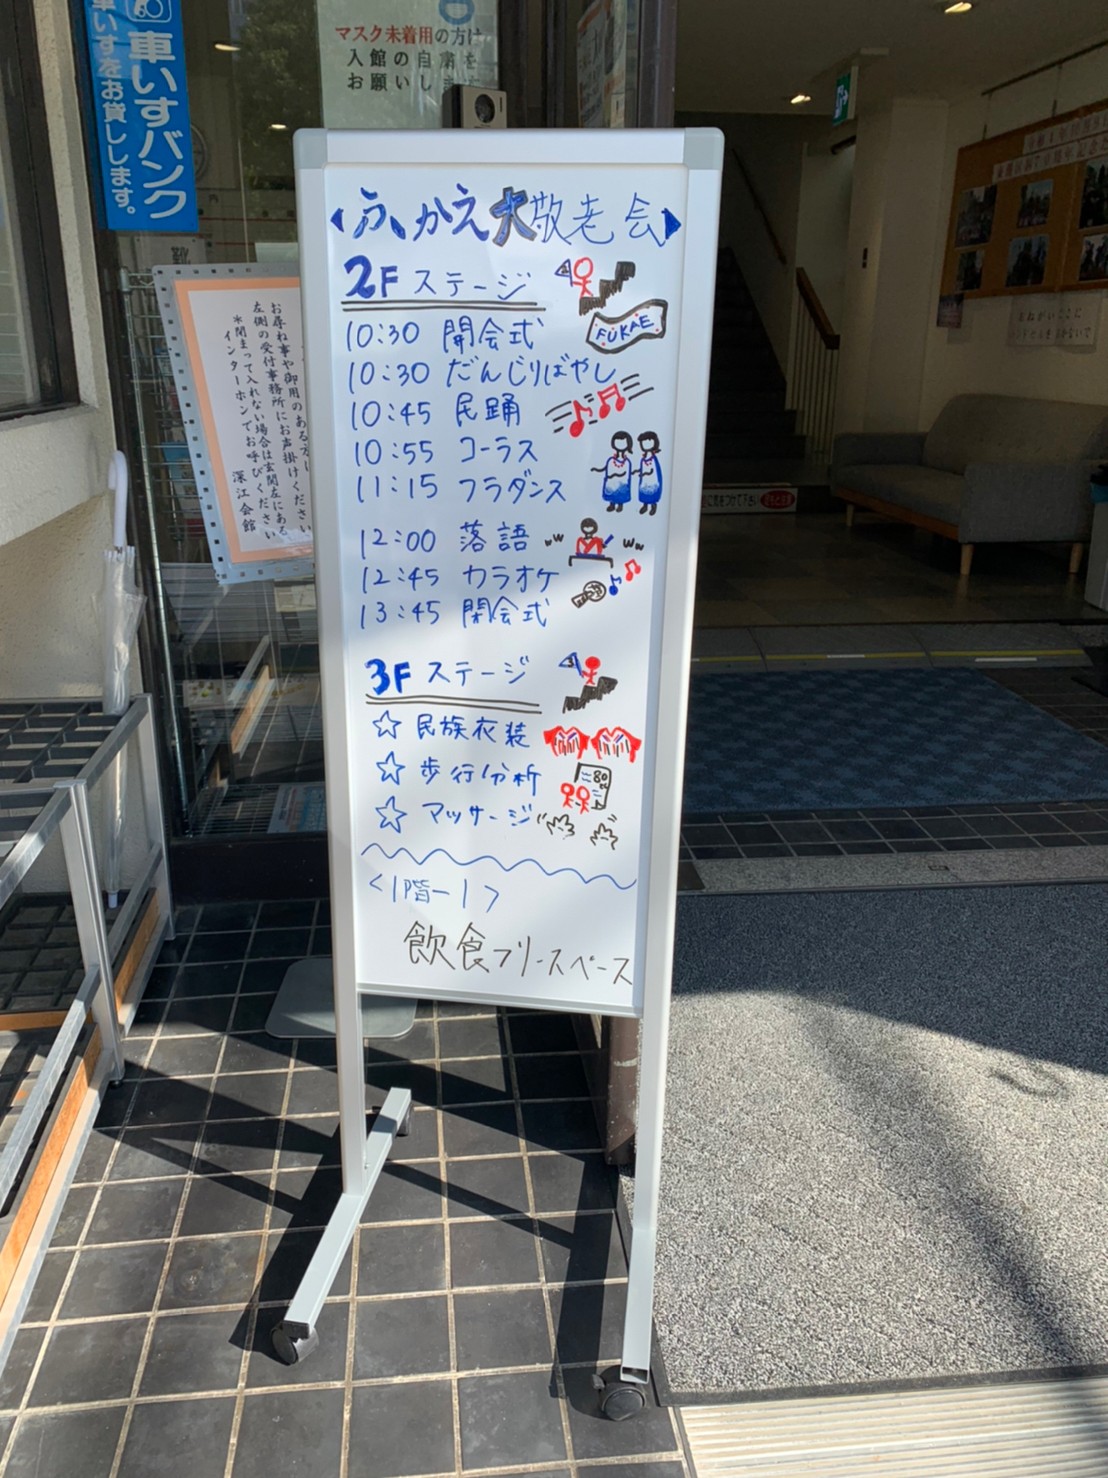 車いすバンク
車いすをお貸しします。
マスク未着用の方は
入館の自粛を
お願いします
ふかえ大敬老会
2F ステージ
FUKAE
10:30 開会式
10:30 だんじりばやし
10:45 民踊
10:55 コーラス
11:15 フラダンス
12:00 落語
12:45 カラオケ
13:45 閉会式
3F ステージ
☆ 民族衣装
☆ 歩行分析
80
☆ マッサージ
<1階ー1>
飲食フリースペース
お尋ね事や御用のある方は
左側の受付事務所にお声掛けください
※閉まって入れない場合は玄関左にある
インターホンでお呼びください
深江会館